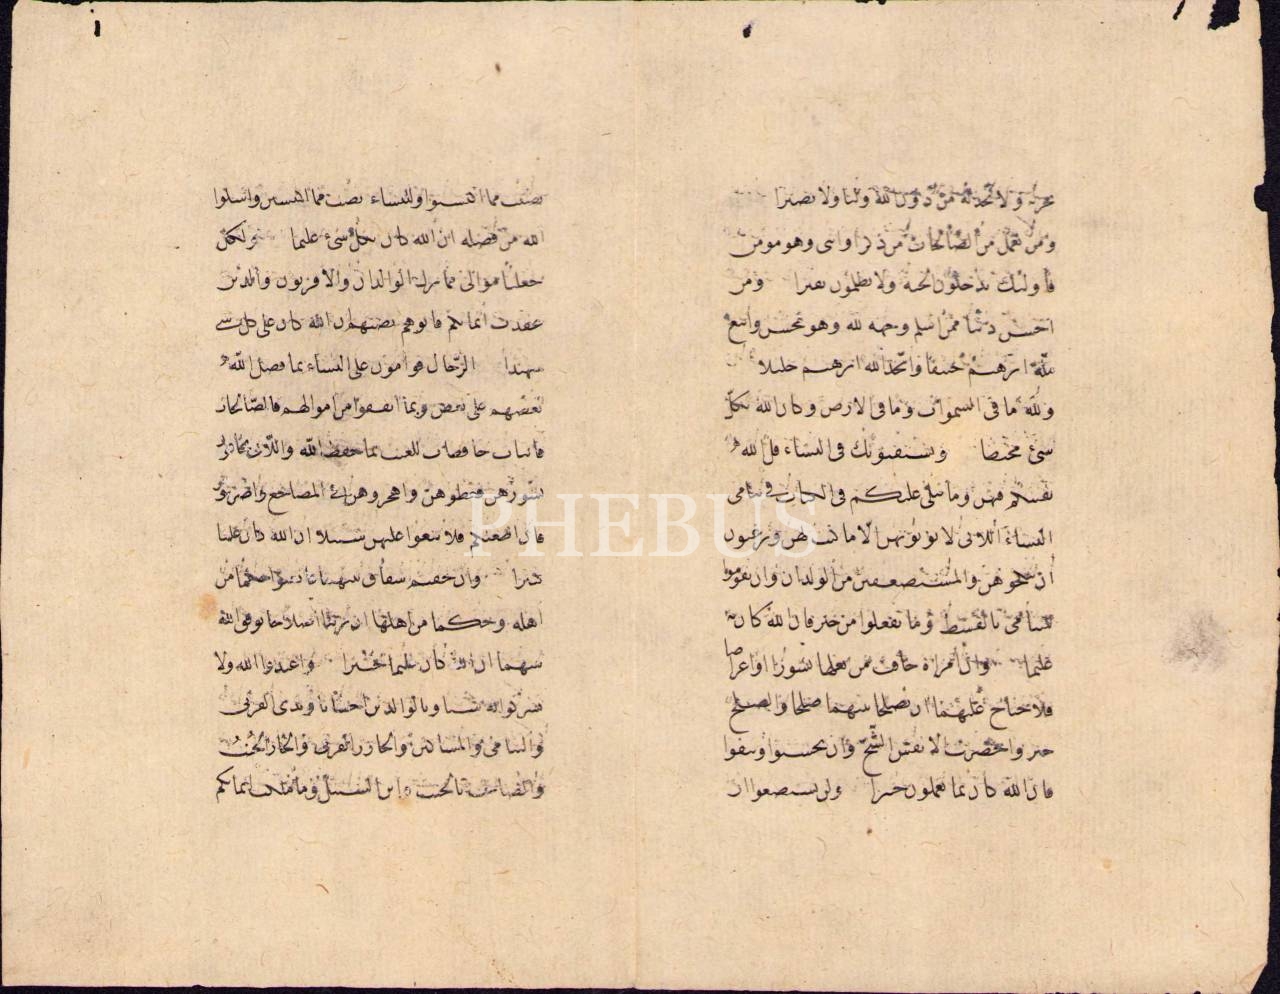 يجز به ولا يجد له من دون الله وليا ولا نصيرا
ومن يعمل من الصالحات من ذكر او انثى وهو مومن
فاولئك يدخلون الجنة ولا يظلمون نقيرا ومن
احسن دينا ممن اسلم وجهه لله وهو محسن واتبع
ملة ابرهيم حنيفا واتخذ الله ابرهيم خليلا
ولله ما في السموات وما في الارض وكان الله بكل
شئ محيطا ويستفتونك في النساء قل الله
يفتيكم فيهن وما يتلى عليكم في الكتاب في يتامى
النساء اللاتي لا تؤتونهن ما كتب لهن وترغبون
ان تنكحوهن والمستضعفين من الولدان وان تقوموا
لليتامى بالقسط وما تفعلوا من خير فان الله كان به
عليما وان امراة خافت من بعلها نشوزا او اعراضا
فلا جناح عليهما ان يصلحا بينهما صلحا والصلح
خير واحضرت الانفس الشح وان تحسنوا وتتقوا
فان الله كان بما تعملون خبيرا ولن تستطيعوا ان
نصيب مما اكتسبوا وللنساء نصيب مما اكتسبن واسئلوا
الله من فضله ان الله كان بكل شئ عليما ولكل
جعلنا موالى مما ترك الوالدان والاقربون والذين
عقدت ايمانكم فاتوهم نصيبهم ان الله كان على كل شئ
شهيدا الرجال قوامون على النساء بما فضل الله
بعضهم على بعض وبما انفقوا من اموالهم فالصالحات
قانتات حافظات للغيب بما حفظ الله واللاتي تخافون
نشوزهن فعظوهن واهجروهن في المضاجع واضربوهن
فان اطعنكم فلا تبغوا عليهن سبيلا ان الله كان عليا
كبيرا وان خفتم شقاق بينهما فابعثوا حكما من
اهله وحكما من اهلها ان يريدا اصلاحا يوفق الله
بينهما ان الله كان عليما خبيرا واعبدوا الله ولا
تشركوا به شيئا وبالوالدين احسانا وبذي القربى
واليتامى والمساكين والجار ذي القربى والجار الجنب
والصاحب بالجنب وابن السبيل وما ملكت ايمانكم
PHEBUS